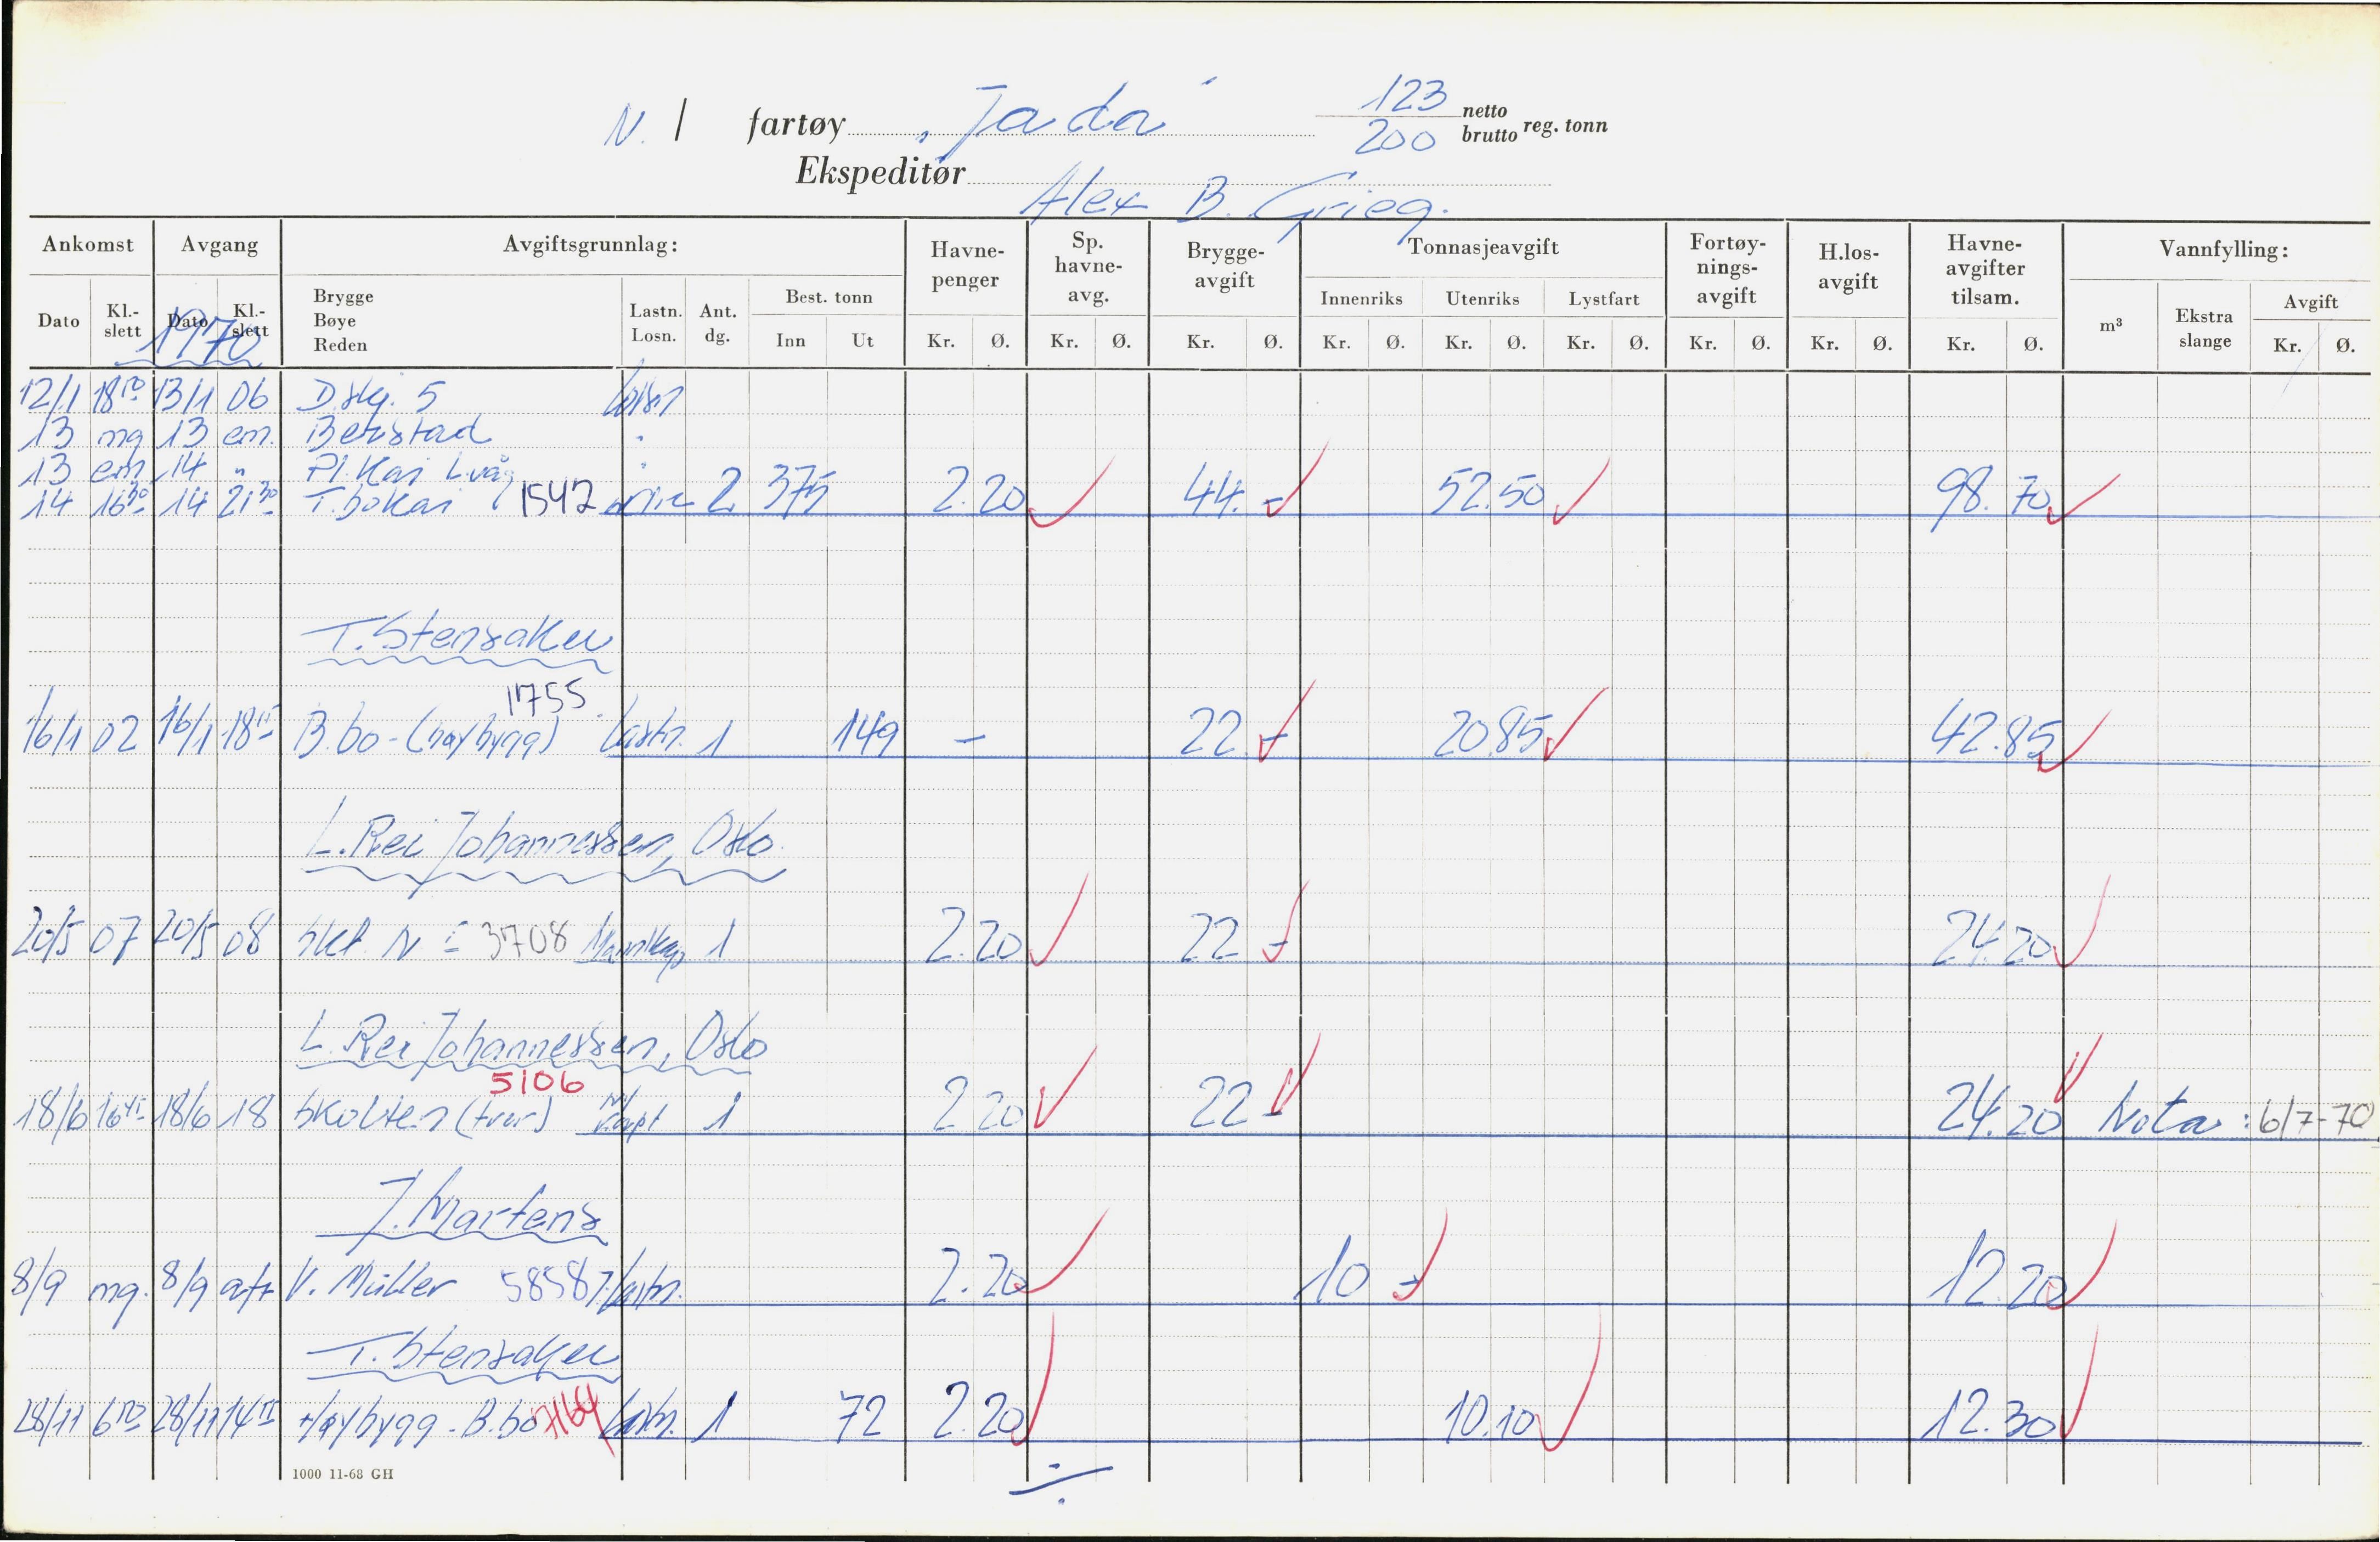 N. / fartøy „Jada" 123 netto
200 brutto reg. tonn
Ekspeditør Alex B. Grieg.
Ankomst Avgang Avgiftsgrunnlag: Havne-penger Sp. havne-avg. Brygge-avgift Tonnasjeavgift Fortøy-nings-avgift H.los-avgift Havne-avgifter tilsam. Vannfylling:
Dato Kl.-slett Dato Kl.-slett Brygge Bøye Reden Lastn. Losn. Ant. dg. Best. tonn Innenriks Utenriks Lystfart m³ Ekstra slange Avgift
Inn Ut Kr. Ø. Kr. Ø. Kr. Ø. Kr. Ø. Kr. Ø. Kr. Ø. Kr. Ø. Kr. Ø. Kr. Ø. Kr. Ø.
1970
12/1 18 13/1 06 D.skj. 5 Lossn
13 mg 13 em. Bekstad "
13 em 14 " Pl. Kai L.våg "
14 16³⁰ 14 21³⁰ T.bokai 1542 2 375 2.20 44.- 52.50 98.70
T. Stensaker
1755
16/1 02 16/1 18 B.bo - (høybygg) Lastn. 1 149 - 22.- 20.85 42.85
L. Rei Johannessen, Oslo
20/5 07 20/5 08 Skt. N = 3708 Mannskap 1 2.20 22.- 24.20
L. Rei Johannessen, Oslo
5106
18/6 16⁴⁵ 18/6 18 Skolten (tver) 1 2 20 22 - 24.20 Nota : 6/7-70
J. Martens
8/9 mg. 8/9 aft V. Müller 5858 Lastn. 2.20 10 - 12.20
T. Stensaker
28/11 6 28/11 14 Høybygg - B.bo 7164 Lastn. 1 72 2.20 10.10 12.30
1000 11-68 GH